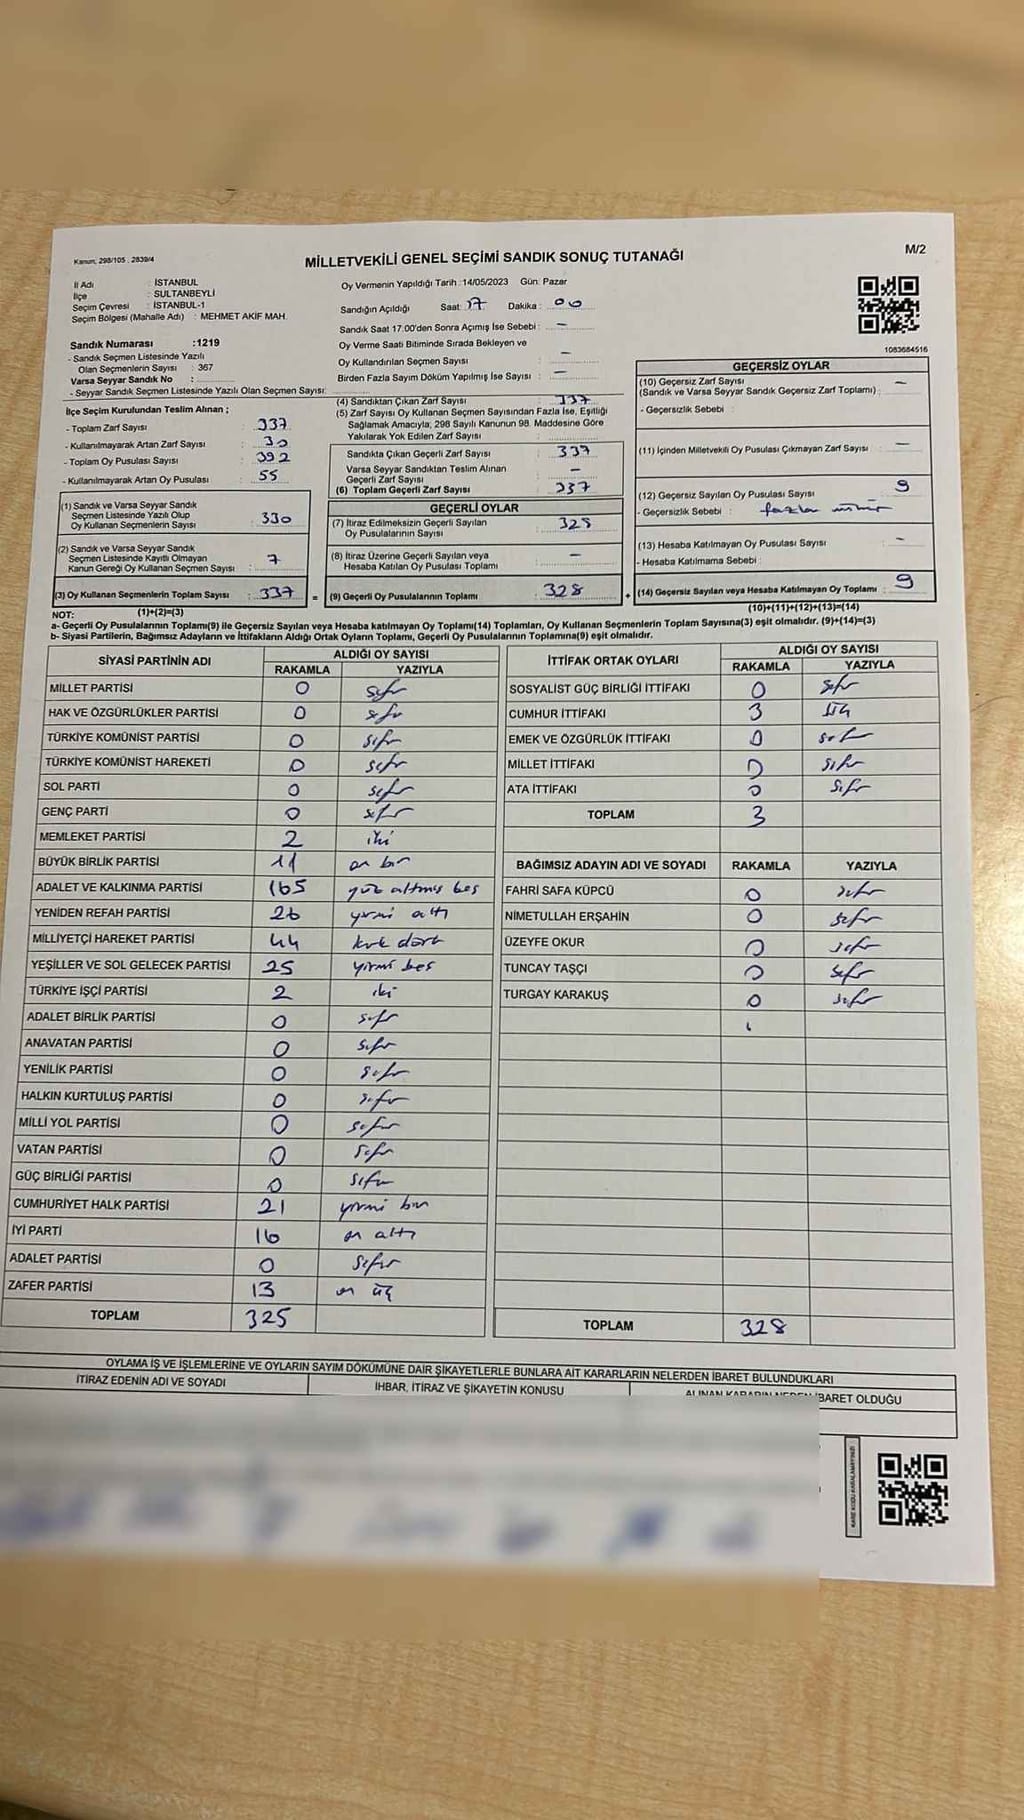 Kanun; 298/105 , 2839/4
MİLLETVEKİLİ GENEL SEÇİMİ SANDIK SONUÇ TUTANAĞI
M/2
İl Adı : İSTANBUL
İlçe : SULTANBEYLİ
Seçim Çevresi : İSTANBUL-1
Seçim Bölgesi (Mahalle Adı) : MEHMET AKİF MAH.
Sandık Numarası :1219
- Sandık Seçmen Listesinde Yazılı
Olan Seçmenlerin Sayısı : 367
Varsa Seyyar Sandık No :
- Seyyar Sandık Seçmen Listesinde Yazılı Olan Seçmen Sayısı:
Oy Vermenin Yapıldığı Tarih :14/05/2023 Gün: Pazar
Sandığın Açıldığı Saat: 17 Dakika : 00
Sandık Saat 17:00'den Sonra Açımış İse Sebebi : –
Oy Verme Saati Bitiminde Sırada Bekleyen ve
Oy Kullandırılan Seçmen Sayısı : –
Birden Fazla Sayım Döküm Yapılmış İse Sayısı : –
1083684516
İlçe Seçim Kurulundan Teslim Alınan ;
- Toplam Zarf Sayısı : 337
- Kullanılmayarak Artan Zarf Sayısı : 30
- Toplam Oy Pusulası Sayısı : 392
- Kullanılmayarak Artan Oy Pusulası : 55
(1) Sandık ve Varsa Seyyar Sandık
Seçmen Listesinde Yazılı Olup
Oy Kullanan Seçmenlerin Sayısı : 330
(2) Sandık ve Varsa Seyyar Sandık
Seçmen Listesinde Kayıtlı Olmayan
Kanun Gereği Oy Kullanan Seçmen Sayısı : 7
(3) Oy Kullanan Seçmenlerin Toplam Sayısı : 337 =
(4) Sandıktan Çıkan Zarf Sayısı : 337
(5) Zarf Sayısı Oy Kullanan Seçmen Sayısından Fazla İse, Eşitliği
Sağlamak Amacıyla; 298 Sayılı Kanunun 98. Maddesine Göre
Yakılarak Yok Edilen Zarf Sayısı :
Sandıkta Çıkan Geçerli Zarf Sayısı : 337
Varsa Seyyar Sandıktan Teslim Alınan
Geçerli Zarf Sayısı : –
(6) Toplam Geçerli Zarf Sayısı : 337
GEÇERLİ OYLAR
(7) İtiraz Edilmeksizin Geçerli Sayılan
Oy Pusulalarının Sayısı : 328
(8) İtiraz Üzerine Geçerli Sayılan veya
Hesaba Katılan Oy Pusulası Toplamı : –
(9) Geçerli Oy Pusulalarının Toplamı : 328 +
GEÇERSİZ OYLAR
(10) Geçersiz Zarf Sayısı
(Sandık ve Varsa Seyyar Sandık Geçersiz Zarf Toplamı) : –
- Geçersizlik Sebebi :
(11) İçinden Milletvekili Oy Pusulası Çıkmayan Zarf Sayısı : –
(12) Geçersiz Sayılan Oy Pusulası Sayısı : 9
- Geçersizlik Sebebi : fazla mühür
(13) Hesaba Katılmayan Oy Pusulası Sayısı : –
- Hesaba Katılmama Sebebi :
(14) Geçersiz Sayılan veya Hesaba Katılmayan Oy Toplamı : 9
NOT: (1)+(2)=(3)
(10)+(11)+(12)+(13)=(14)
a- Geçerli Oy Pusulalarının Toplamı(9) ile Geçersiz Sayılan veya Hesaba katılmayan Oy Toplamı(14) Toplamları, Oy Kullanan Seçmenlerin Toplam Sayısına(3) eşit olmalıdır. (9)+(14)=(3)
b- Siyasi Partilerin, Bağımsız Adayların ve İttifakların Aldığı Ortak Oyların Toplamı, Geçerli Oy Pusulalarının Toplamına(9) eşit olmalıdır.
SİYASİ PARTİNİN ADI ALDIĞI OY SAYISI
RAKAMLA YAZIYLA
MİLLET PARTİSİ 0 sıfır
HAK VE ÖZGÜRLÜKLER PARTİSİ 0 sıfır
TÜRKİYE KOMÜNİST PARTİSİ 0 sıfır
TÜRKİYE KOMÜNİST HAREKETİ 0 sıfır
SOL PARTİ 0 sıfır
GENÇ PARTİ 0 sıfır
MEMLEKET PARTİSİ 2 iki
BÜYÜK BİRLİK PARTİSİ 11 on bir
ADALET VE KALKINMA PARTİSİ 165 yüz altmış beş
YENİDEN REFAH PARTİSİ 26 yirmi altı
MİLLİYETÇİ HAREKET PARTİSİ 44 kırk dört
YEŞİLLER VE SOL GELECEK PARTİSİ 25 yirmi beş
TÜRKİYE İŞÇİ PARTİSİ 2 iki
ADALET BİRLİK PARTİSİ 0 sıfır
ANAVATAN PARTİSİ 0 sıfır
YENİLİK PARTİSİ 0 sıfır
HALKIN KURTULUŞ PARTİSİ 0 sıfır
MİLLİ YOL PARTİSİ 0 sıfır
VATAN PARTİSİ 0 sıfır
GÜÇ BİRLİĞİ PARTİSİ 0 sıfır
CUMHURİYET HALK PARTİSİ 21 yirmi bir
İYİ PARTİ 16 on altı
ADALET PARTİSİ 0 sıfır
ZAFER PARTİSİ 13 on üç
TOPLAM 325
İTTİFAK ORTAK OYLARI ALDIĞI OY SAYISI
RAKAMLA YAZIYLA
SOSYALİST GÜÇ BİRLİĞİ İTTİFAKI 0 sıfır
CUMHUR İTTİFAKI 3 üç
EMEK VE ÖZGÜRLÜK İTTİFAKI 0 sıfır
MİLLET İTTİFAKI 0 sıfır
ATA İTTİFAKI 0 sıfır
TOPLAM 3
BAĞIMSIZ ADAYIN ADI VE SOYADI RAKAMLA YAZIYLA
FAHRİ SAFA KÜPCÜ 0 sıfır
NİMETULLAH ERŞAHİN 0 sıfır
ÜZEYFE OKUR 0 sıfır
TUNCAY TAŞÇI 0 sıfır
TURGAY KARAKUŞ 0 sıfır
TOPLAM 328
OYLAMA İŞ VE İŞLEMLERİNE VE OYLARIN SAYIM DÖKÜMÜNE DAİR ŞİKAYETLERLE BUNLARA AİT KARARLARIN NELERDEN İBARET BULUNDUKLARI
İTİRAZ EDENİN ADI VE SOYADI İHBAR, İTİRAZ VE ŞİKAYETİN KONUSU ALINAN KARARIN NEDEN İBARET OLDUĞU
KARE KODU KARALAMAYINIZ!